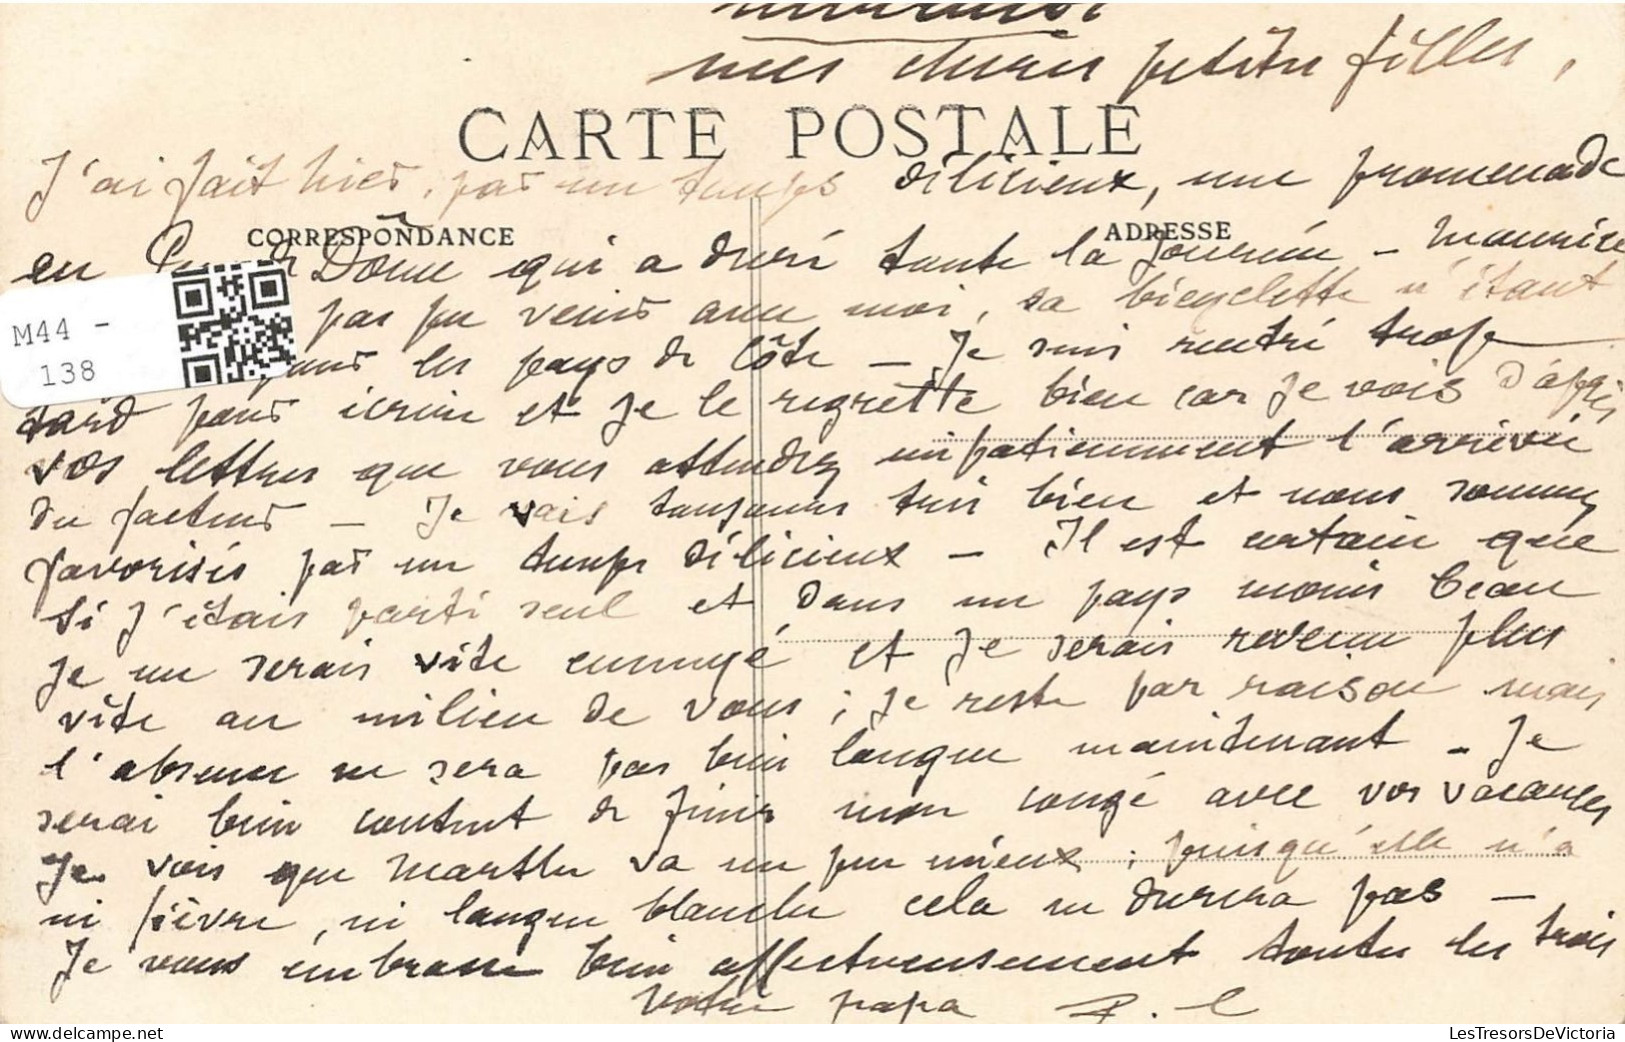 mes chères petites filles,
CARTE POSTALE
J'ai fait hier, par un temps délicieux, une promenade
CORRESPONDANCE
ADRESSE
en Puy de Dôme qui a duré toute la journée - Maurice
pas pu venir avec moi, sa bicyclette n'étant
M44 -
138
pour les pays de côte - Je suis rentré trop
tard pour écrire et je le regrette bien car je vois d'après
vos lettres que vous attendez impatiemment l'arrivée
du facteur - Je vais toujours très bien et nous sommes
favorisés par un temps délicieux - Il est certain que
si j'étais parti seul et dans un pays moins beau
je me serais vite ennuyé et je serais revenu plus
vite au milieu de vous ; je reste par raison mais
l'absence ne sera pas bien longue maintenant - Je
serai bien content de finir mon congé avec vos vacances
Je vois que Marthe va un peu mieux ; puisqu'elle n'a
ni fièvre, ni langue blanche cela ne durera pas -
Je vous embrasse bien affectueusement toutes les trois
Votre papa
LesTresorsDeVictoria.com